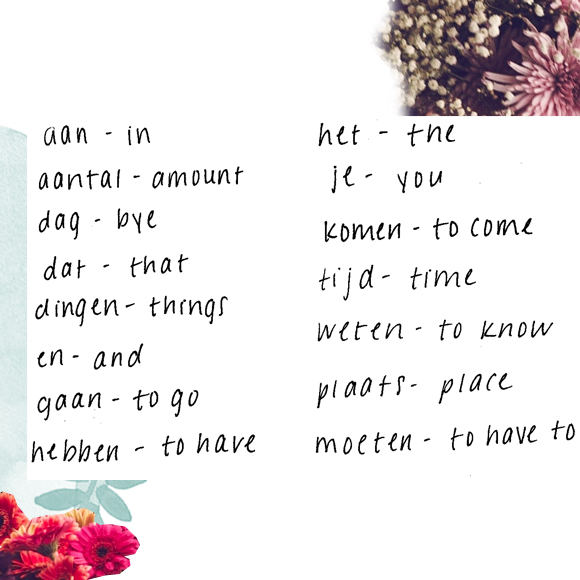 aan - in
aantal - amount
dag - bye
dat - that
dingen - things
en - and
gaan - to go
hebben - to have
het - the
je - you
komen - to come
tijd - time
weten - to know
plaats - place
moeten - to have to